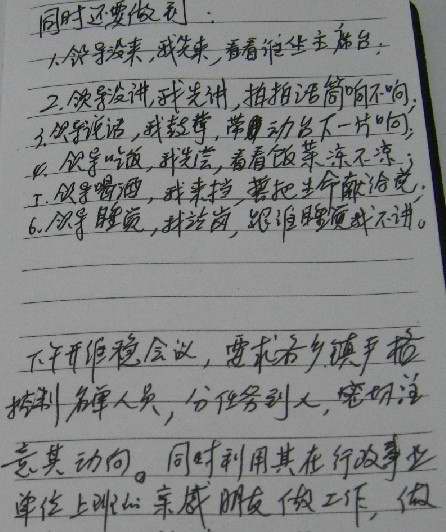 同时还要做到：
1.领导没来，我先来，看看谁坐主席台；
2.领导没讲，我先讲，拍拍话筒响不响；
3.领导说话，我鼓掌，带动台下一片响；
4.领导吃饭，我先尝，看看饭菜凉不凉；
5.领导喝酒，我来挡，要把生命献给党；
6.领导睡觉，我站岗，跟谁睡觉我不讲。
下午开维稳会议，要求各乡镇严格
控制名单人员，分任务到人，密切注
意其动向。同时利用其在行政事业
单位上班的亲戚朋友做工作，做